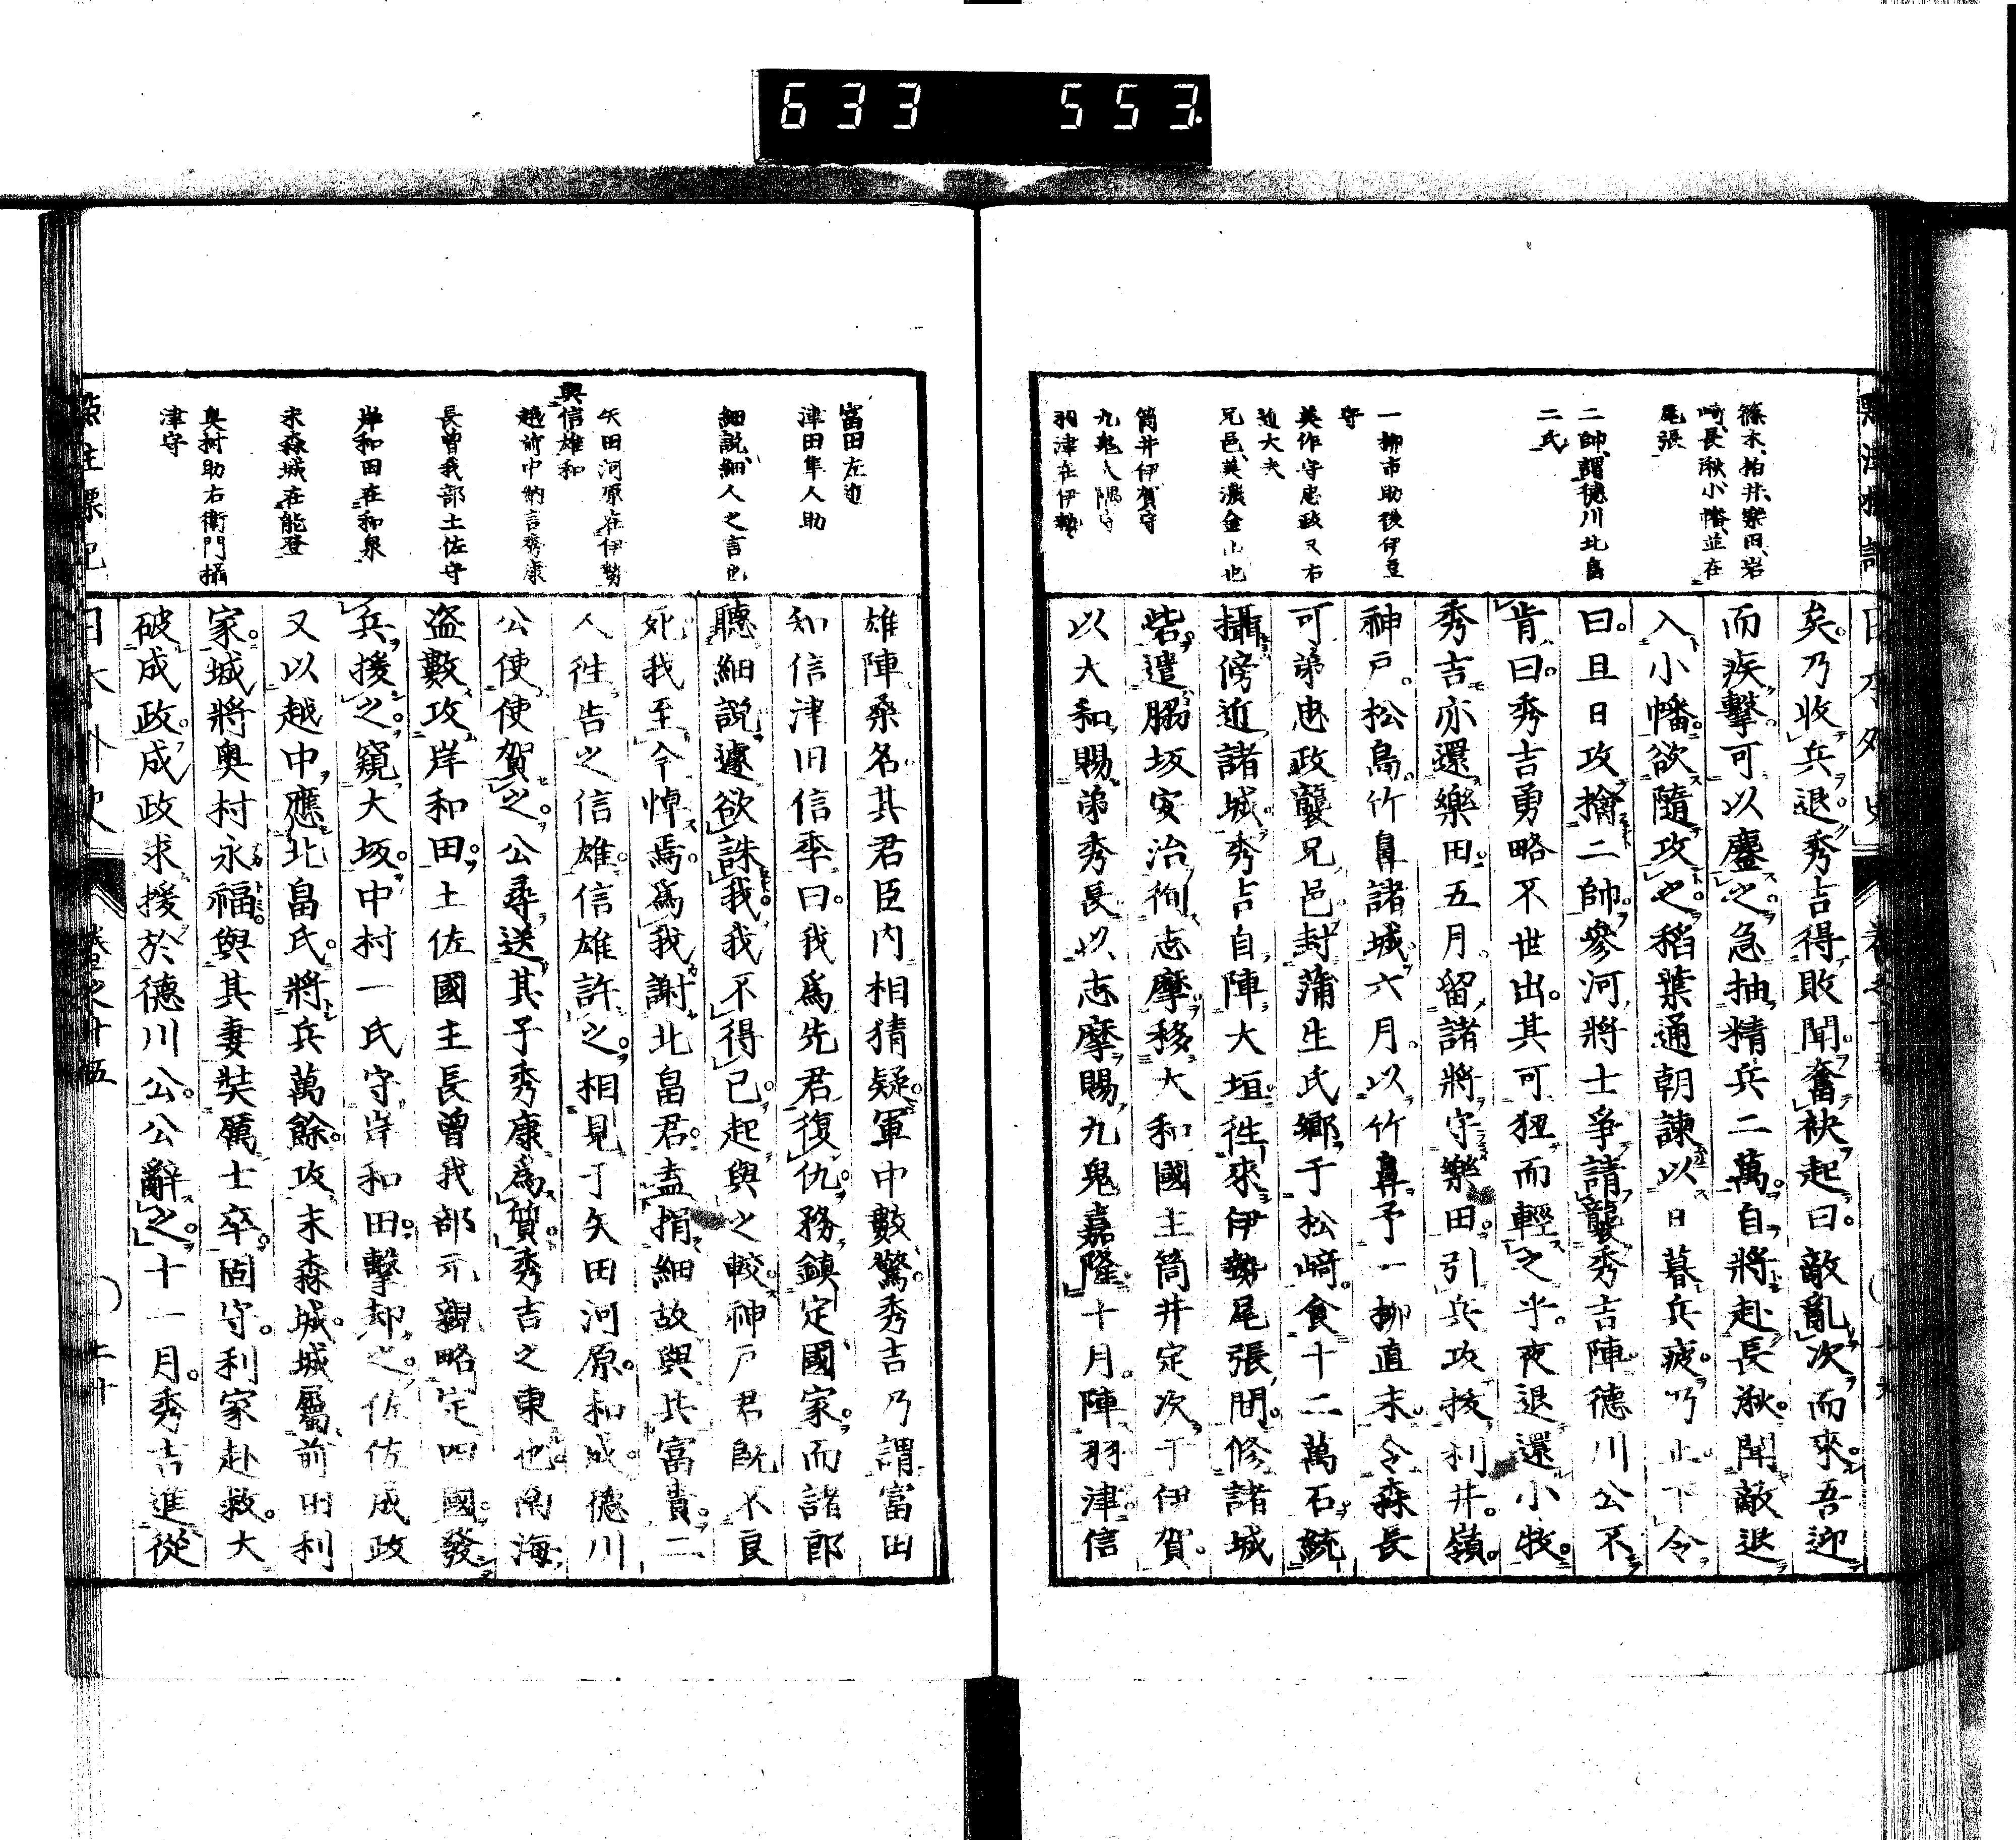 633 553
篠木、柏井、樂田、岩
崎、長湫、小幡、並在
尾張
二帥、謂德川北畠
二氏
一柳市助後伊豆
守
美作守忠政又右
近大夫
兄邑、美濃金山也
筒井伊賀守
九鬼大隅守
羽津在伊勢
矣。乃收兵退。秀吉得敗聞。奮袂起曰。敵亂次而來。吾迎
而疾擊。可以鏖之。急抽精兵二萬。自將赴長湫。聞敵退
入小幡。欲隨攻之。稻葉通朝諫以日暮兵疲。乃止。下令
曰。且日攻擒二帥。參河將士爭請襲秀吉陣。德川公不
肯。曰。秀吉勇略不世出。其可狃而輕之乎。夜退還小牧。
秀吉亦還樂田。五月。留諸將守樂田。引兵攻拔利井。嶺。
神戶。松島。竹鼻諸城。六月。以竹鼻予一柳直末。令森長
可弟忠政襲兄邑。封蒲生氏鄉于松﨑。食十二萬石。統
攝傍近諸城。秀吉自陣大垣。徃來伊勢尾張間。修諸城
砦。遣脇坂安治徇志摩。移大和國主筒井定次于伊賀。
以大和賜弟秀長。以志摩賜九鬼嘉隆。十月。陣羽津。信
富田左近
津田隼人助
細說、細人之言也
矢田河原在伊勢
與信雄和
越前中納言秀康
長曾我部土佐守
岸和田在和泉
末森城在能登
奧村助右衛門攝
津守
雄陣桑名。其君臣內相猜疑。軍中數驚。秀吉乃謂富田
知信津田信季曰。我爲先君復仇。務鎮定國家。而諸郎
聽細說。遽欲誅我。我不得已。起與之較。神戶君旣不良
死。我至今悼焉。爲我謝北畠君。盍捐細故與共富貴。二
人徃告之信雄。信雄許之。相見于矢田河原。和成。德川
公使使賀之。公尋送其子秀康爲質。秀吉之東也。南海
盜數攻岸和田。土佐國主長曾我部元親略定四國。發
兵援之。窺大坂。中村一氏守岸和田。擊却之。佐佐成政
又以越中應北畠氏。將兵萬餘。攻末森城。城屬前田利
家。城將奧村永福。與其妻奘厲士卒。固守。利家赴救。大
破成政。成政求援於德川公。公辭之。十一月。秀吉進從
日本外史 卷之廿伍